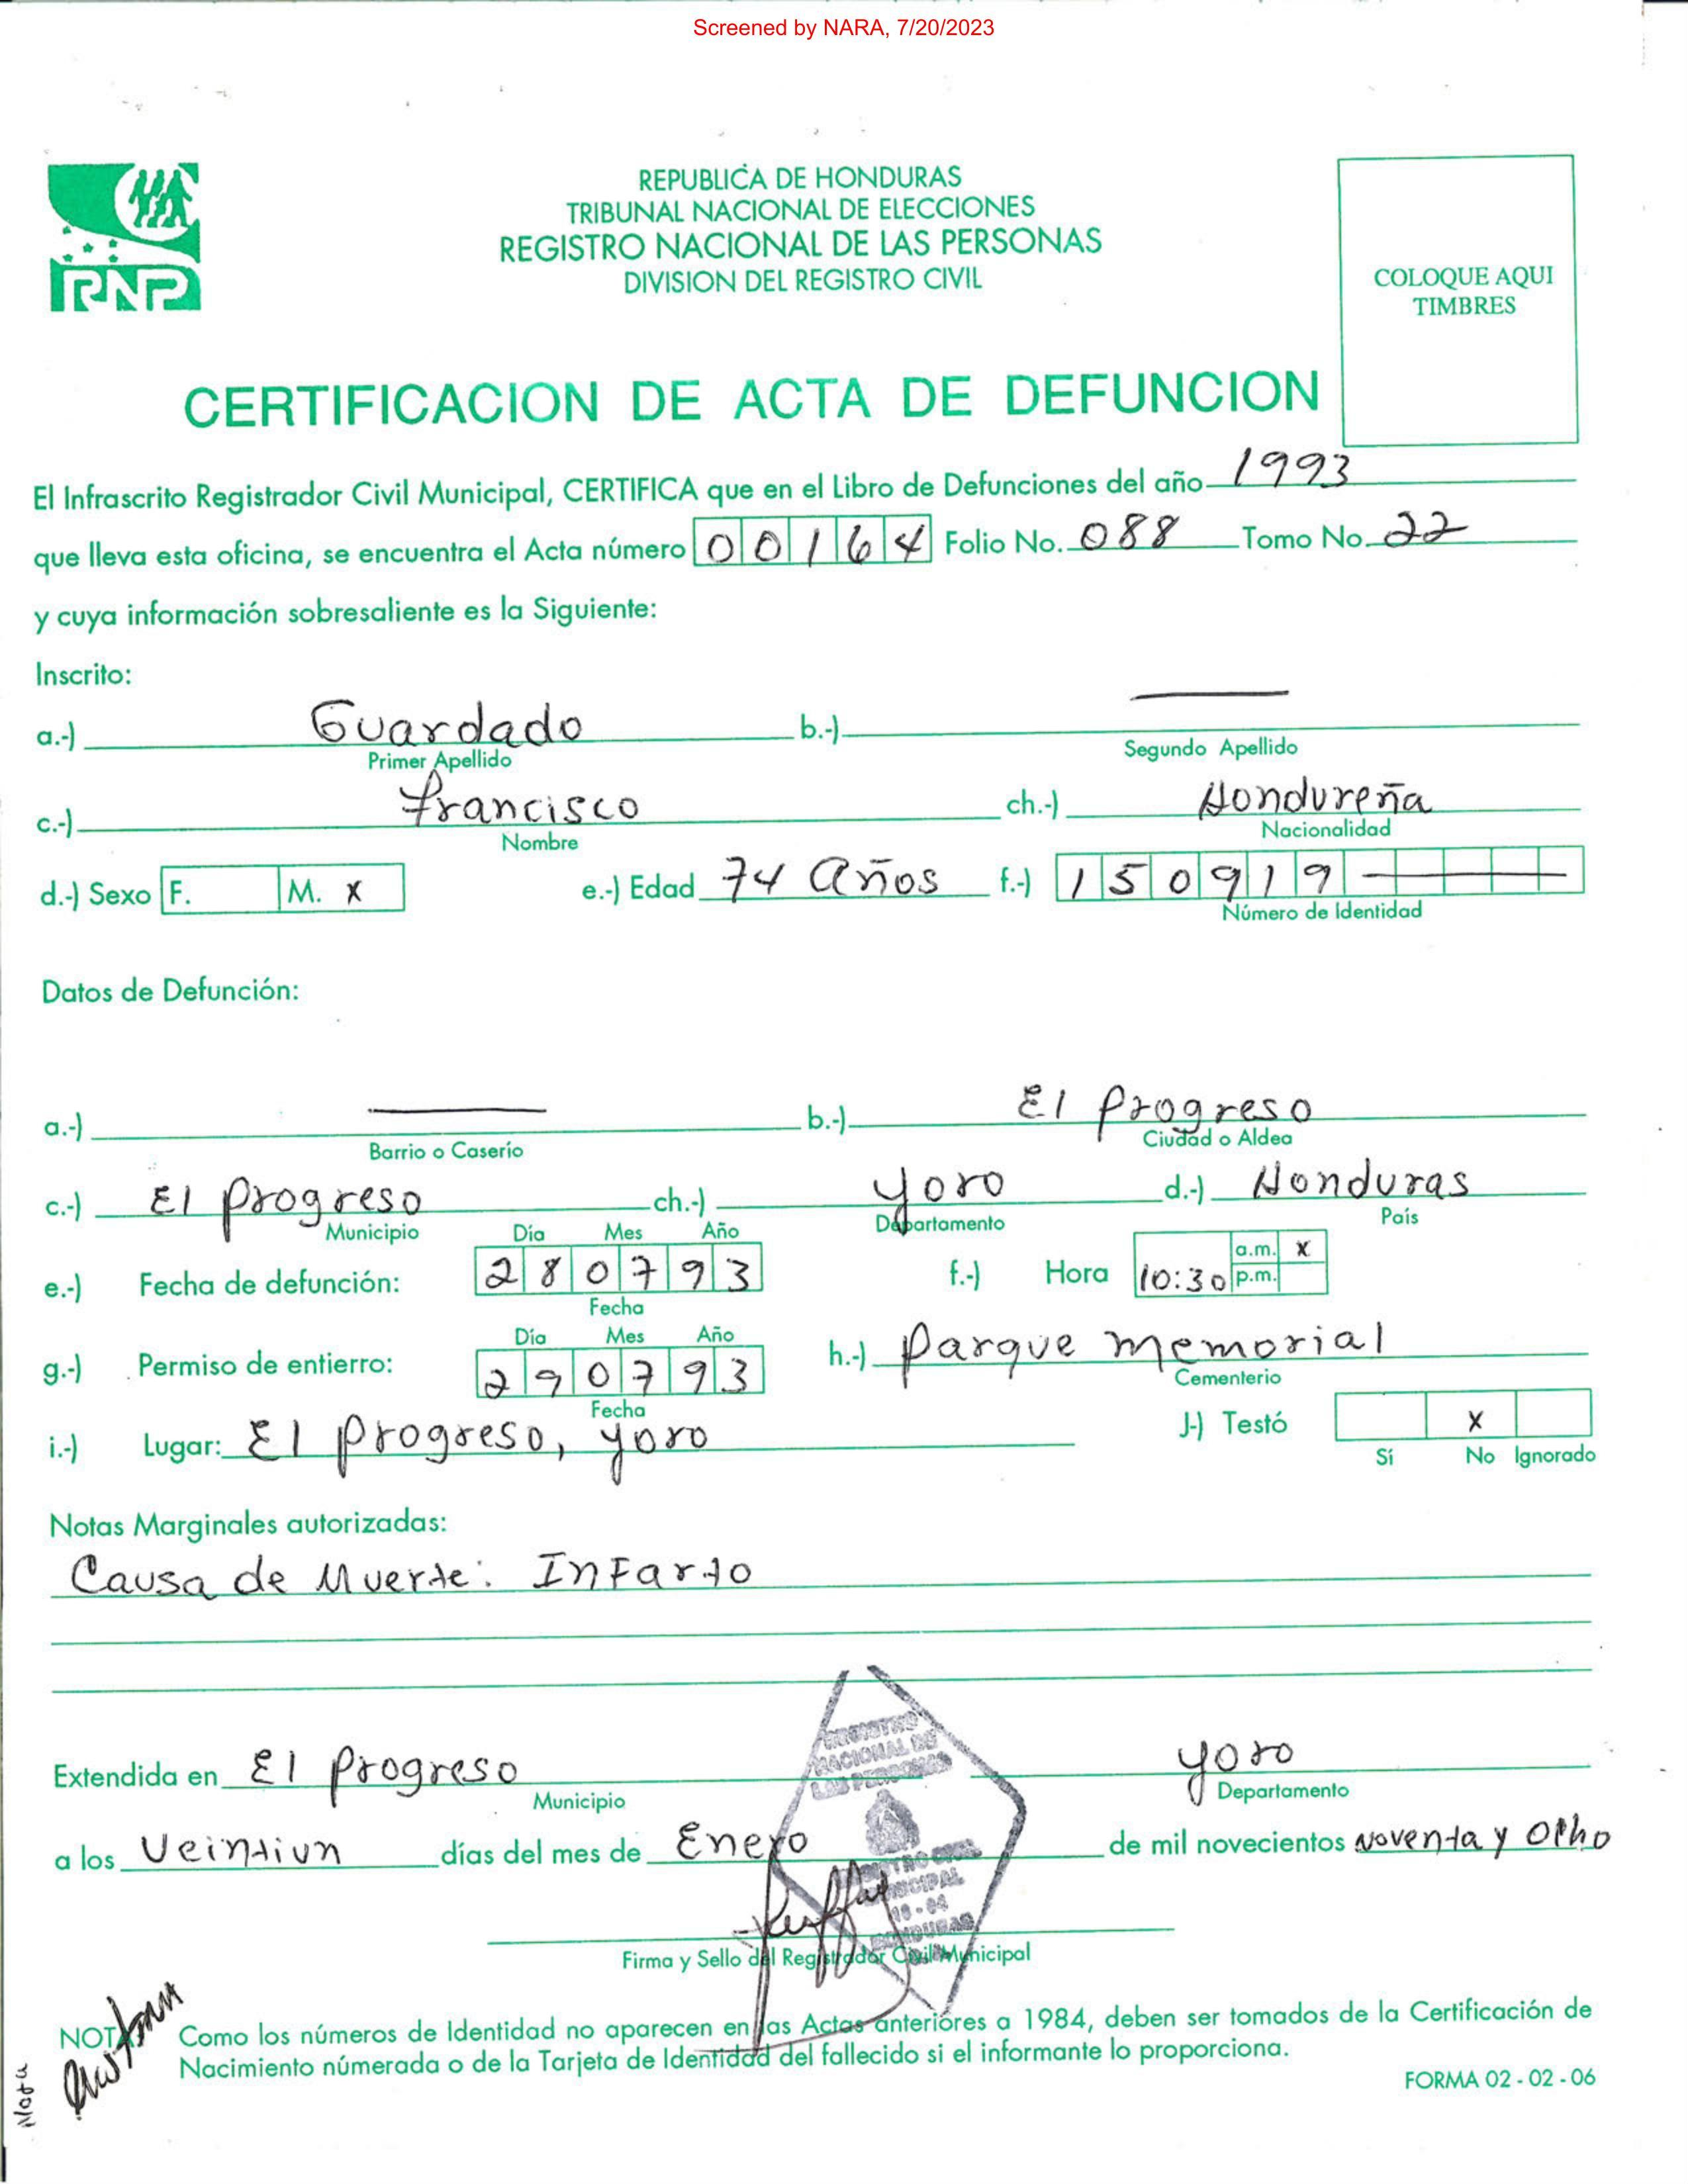 Screened by NARA, 7/20/2023
RNP
REPUBLICA DE HONDURAS
TRIBUNAL NACIONAL DE ELECCIONES
REGISTRO NACIONAL DE LAS PERSONAS
DIVISION DEL REGISTRO CIVIL
COLOQUE AQUI
TIMBRES
CERTIFICACION DE ACTA DE DEFUNCION
El Infrascrito Registrador Civil Municipal, CERTIFICA que en el Libro de Defunciones del año 1993
que lleva esta oficina, se encuentra el Acta número 00164 Folio No. 088 Tomo No. 22
y cuya información sobresaliente es la Siguiente:
Inscrito:
a.-) Guardado b.-)
Primer Apellido Segundo Apellido
c.-) Francisco ch.-) Hondureña
Nombre Nacionalidad
d.-) Sexo F. M. X e.-) Edad 74 Años f.-) 150919
Número de Identidad
Datos de Defunción:
a.-) b.-) El Progreso
Barrio o Caserío Ciudad o Aldea
c.-) El Progreso ch.-) Yoro d.-) Honduras
Municipio Departamento País
Día Mes Año
e.-) Fecha de defunción: 280793 f.-) Hora 10:30 a.m. X p.m.
Fecha
Día Mes Año
g.-) Permiso de entierro: 290793 h.-) Parque Memorial
Fecha Cementerio
i.-) Lugar: El Progreso, Yoro J-) Testó X
Sí No Ignorado
Notas Marginales autorizadas:
Causa de Muerte: Infarto
Extendida en El Progreso Yoro
Municipio Departamento
a los Veintiun días del mes de Enero de mil novecientos Noventa y Ocho
REGISTRO
NACIONAL DE
LAS PERSONAS
Firma y Sello del Registrador Civil Municipal
NOTA: Como los números de Identidad no aparecen en las Actas anteriores a 1984, deben ser tomados de la Certificación de
Nacimiento númerada o de la Tarjeta de Identidad del fallecido si el informante lo proporciona.
FORMA 02 - 02 - 06